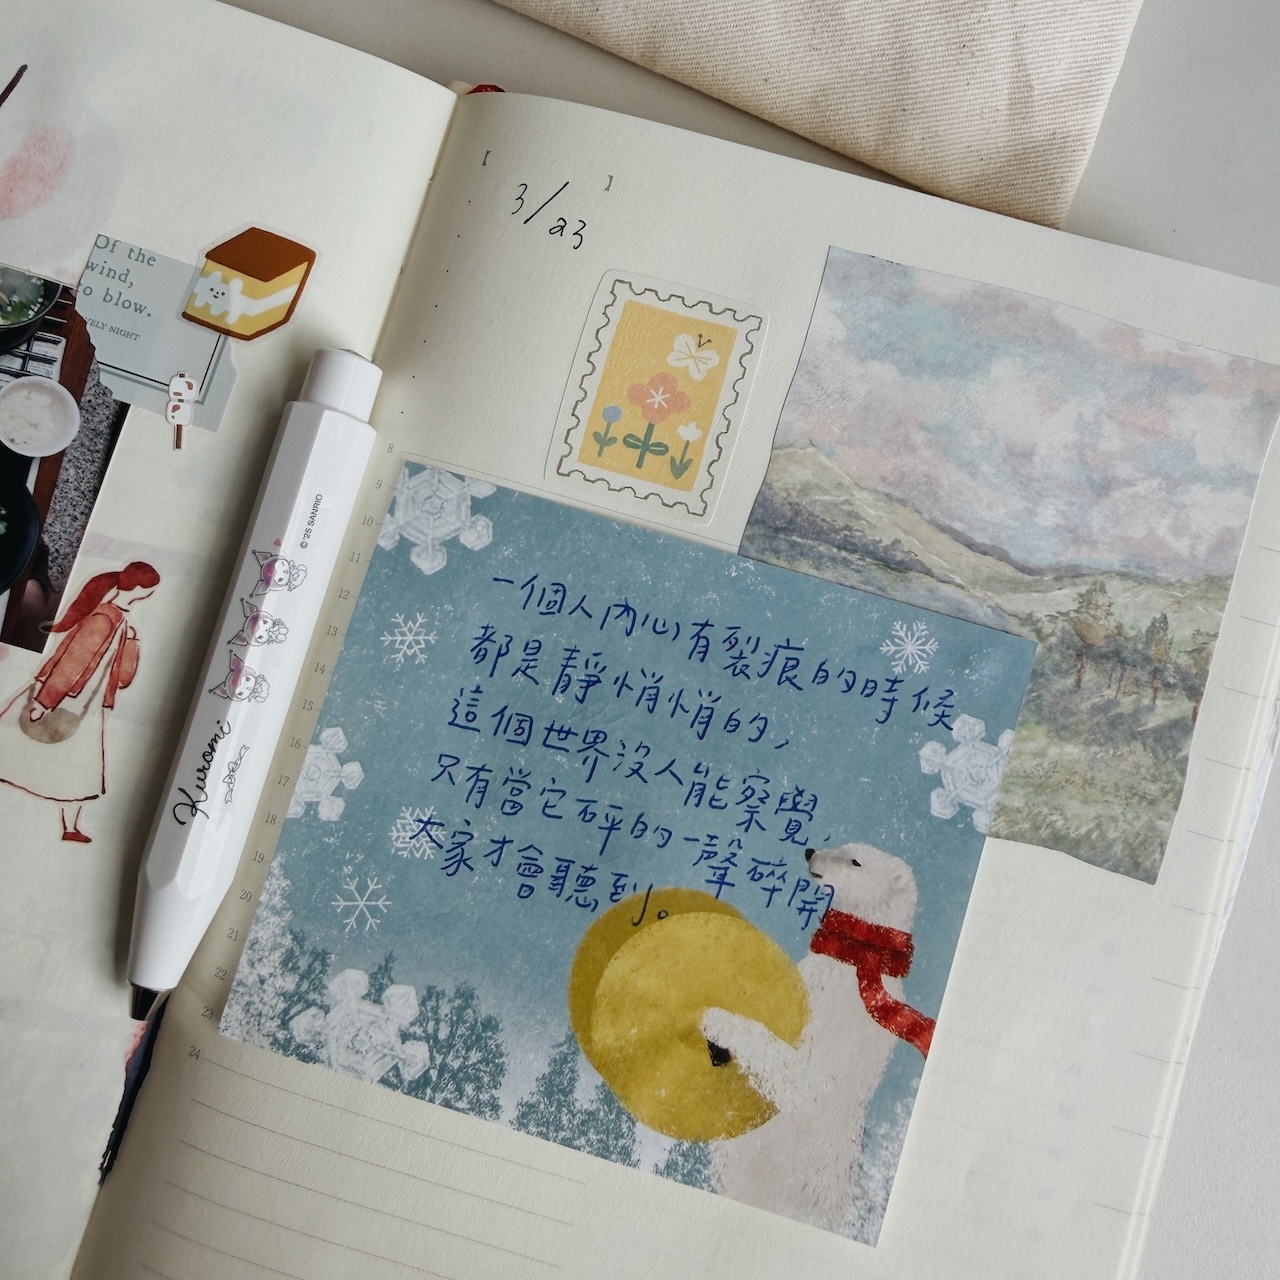 Of the
wind,
to blow.
VELY NIGHT
【 】
3/23
8
9
10
11
12
13
14
15
16
17
18
19
20
21
22
23
24
一個人內心有裂痕的時候
都是靜悄悄的,
這個世界沒人能察覺,
只有當它砰的一聲碎開
大家才會聽到。
© '25 SANRIO
Kuromi